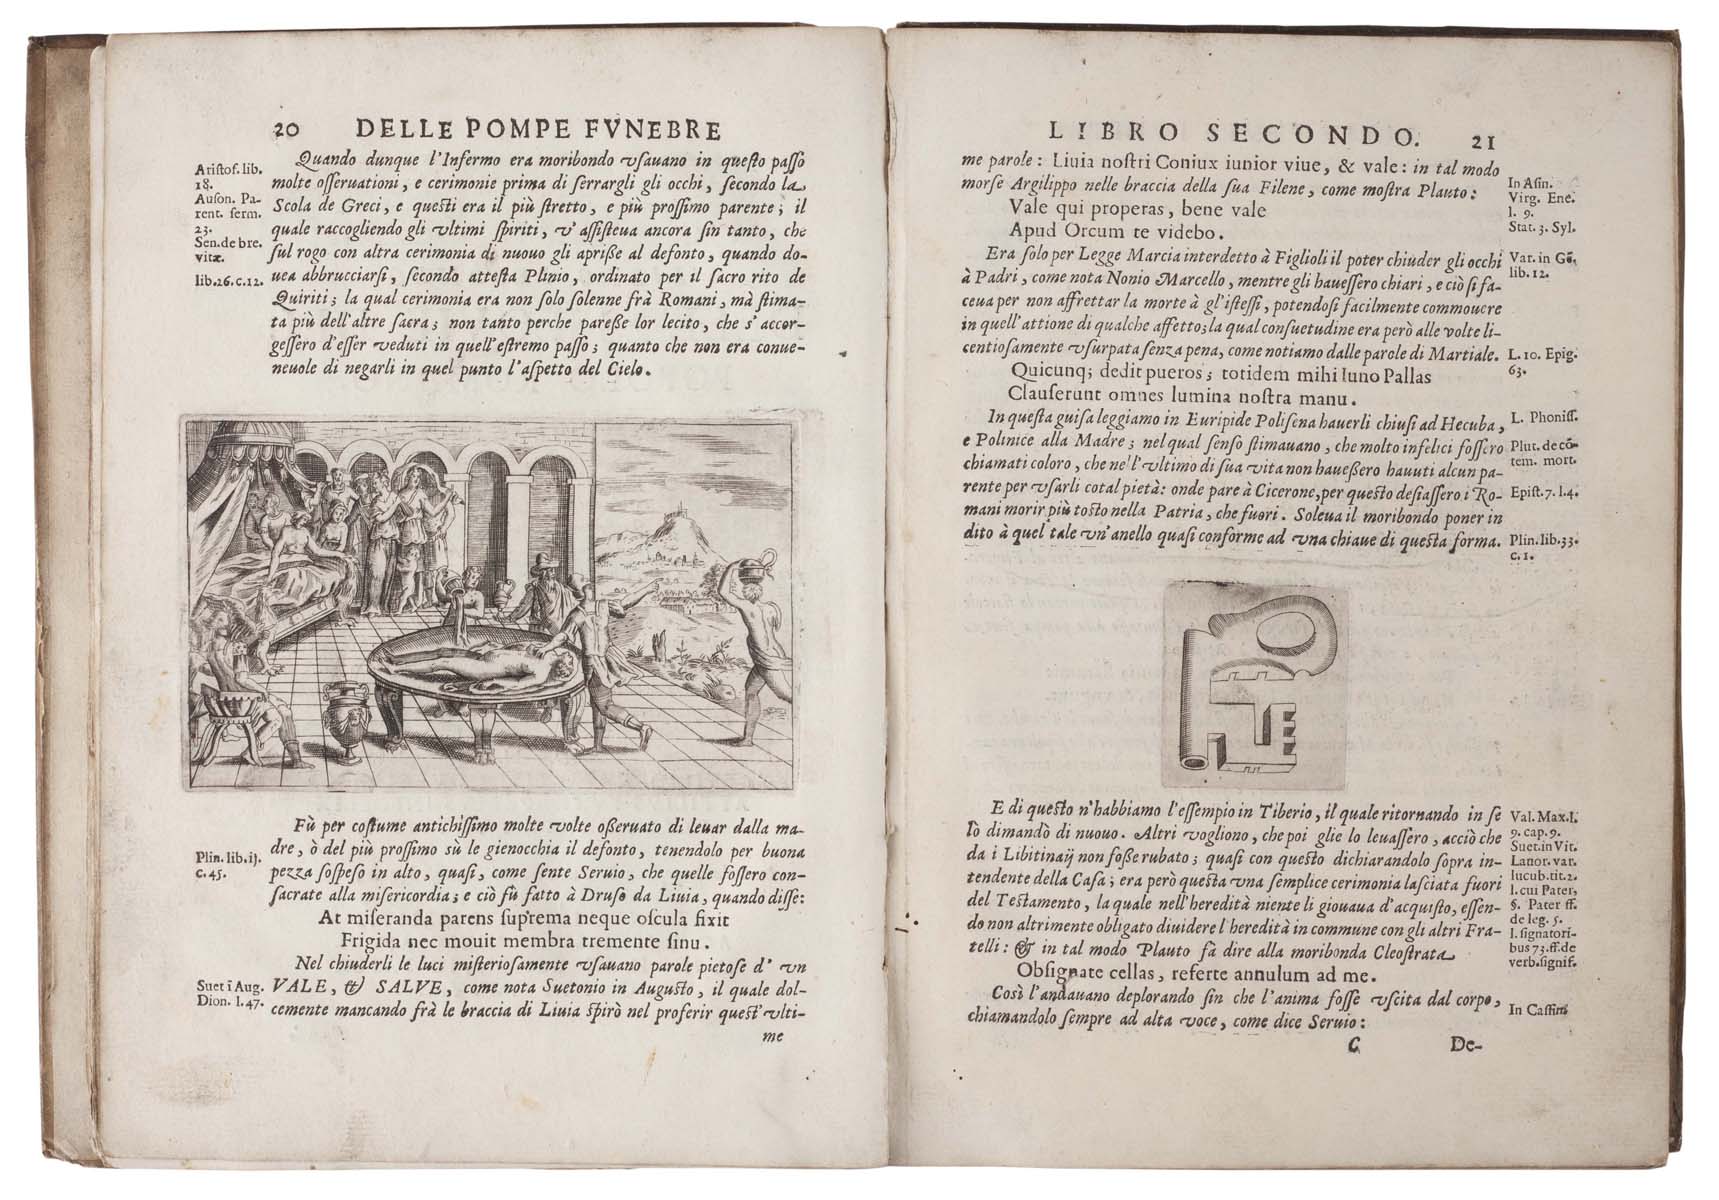 20 DELLE POMPE FVNEBRE
Quando dunque l'Infermo era moribondo vsauano in questo passo
molte osseruationi, e cerimonie prima di serrargli gli occhi, secondo la
Scola de Greci, e questi era il più stretto, e più prossimo parente; il
quale raccogliendo gli vltimi spiriti, v'assisteua ancora sin tanto, che
sul rogo con altra cerimonia di nuouo gli aprisse al defonto, quando do-
uea abbrucciarsi, secondo attesta Plinio, ordinato per il sacro rito de
Quiriti; la qual cerimonia era non solo solenne frà Romani, mà stima-
ta più dell'altre sacra; non tanto perche paresse lor lecito, che s'accor-
gessero d'esser veduti in quell'estremo passo; quanto che non era conue-
neuole di negarli in quel punto l'aspetto del Cielo.
Aristof. lib.
18.
Auson. Pa-
rent. serm.
23.
Sen. de bre.
vitæ.
lib. 26. c. 12.
Fù per costume antichissimo molte volte osseruato di leuar dalla ma-
dre, ò del più prossimo sù le gienocchia il defonto, tenendolo per buona
pezza sospeso in alto, quasi, come sente Seruio, che quelle fossero con-
sacrate alla misericordia; e ciò fù fatto à Druso da Liuia, quando disse:
At miseranda parens suprema neque oscula fixit
Frigida nec mouit membra tremente sinu.
Nel chiuderli le luci misteriosamente vsauano parole pietose d' vn
VALE, & SALVE, come nota Suetonio in Augusto, il quale dol-
cemente mancando frà le braccia di Liuia spirò nel proferir quest'vlti-
me
Plin. lib. ij.
c. 45.
Suet ī Aug.
Dion. l. 47.
LIBRO SECONDO. 21
me parole: Liuia nostri Coniux iunior viue, & vale: in tal modo
morse Argilippo nelle braccia della sua Filene, come mostra Plauto:
Vale qui properas, bene vale
Apud Orcum te videbo.
Era solo per Legge Marcia interdetto à Figlioli il poter chiuder gli occhi
à Padri, come nota Nonio Marcello, mentre gli hauessero chiari, e ciò si fa-
ceua per non affrettar la morte à gl'istessi, potendosi facilmente commouere
in quell'attione di qualche affetto; la qual consuetudine era però alle volte li-
centiosamente vsurpata senza pena, come notiamo dalle parole di Martiale.
Quicunq; dedit pueros; totidem mihi Iuno Pallas
Clauserunt omnes lumina nostra manu.
In questa guisa leggiamo in Euripide Polisena hauerli chiusi ad Hecuba,
e Polinice alla Madre; nel qual senso stimauano, che molto infelici fossero
chiamati coloro, che nell'vltimo di sua vita non hauessero hauuti alcun pa-
rente per vsarli cotal pietà: onde pare à Cicerone, per questo desiassero i Ro-
mani morir più tosto nella Patria, che fuori. Soleua il moribondo poner in
dito à quel tale vn'anello quasi conforme ad vna chiaue di questa forma.
In Asin.
Virg. Ene.
l. 9.
Stat. 3. Syl.
Var. in Gē.
lib. 12.
L. 10. Epig.
63.
L. Phoniss.
Plut. de cō-
tem. mort.
Epist. 7. l. 4.
Plin. lib. 33.
c. 1.
E di questo n'habbiamo l'essempio in Tiberio, il quale ritornando in se
lò dimandò di nuouo. Altri vogliono, che poi glie lo leuassero, acciò che
da i Libitinaij non fosse rubato; quasi con questo dichiarandolo sopra in-
tendente della Casa; era però questa vna semplice cerimonia lasciata fuori
del Testamento, la quale nell'heredità niente li giouaua d'acquisto, essen-
do non altrimente obligato diuidere l'heredità in commune con gli altri Fra-
telli: & in tal modo Plauto fà dire alla moribonda Cleostrata
Obsignate cellas, referte annulum ad me.
Così l'andauano deplorando sin che l'anima fosse vscita dal corpo,
chiamandolo sempre ad alta voce, come dice Seruio:
Val. Max. l.
9. cap. 9.
Suet. in Vit.
Lanor. var.
lucub. tit. 2.
l. cui Pater,
§. Pater ff.
de leg. 5.
l. signatori-
bus 73. ff. de
verb. signif.
In Cassin
C De-